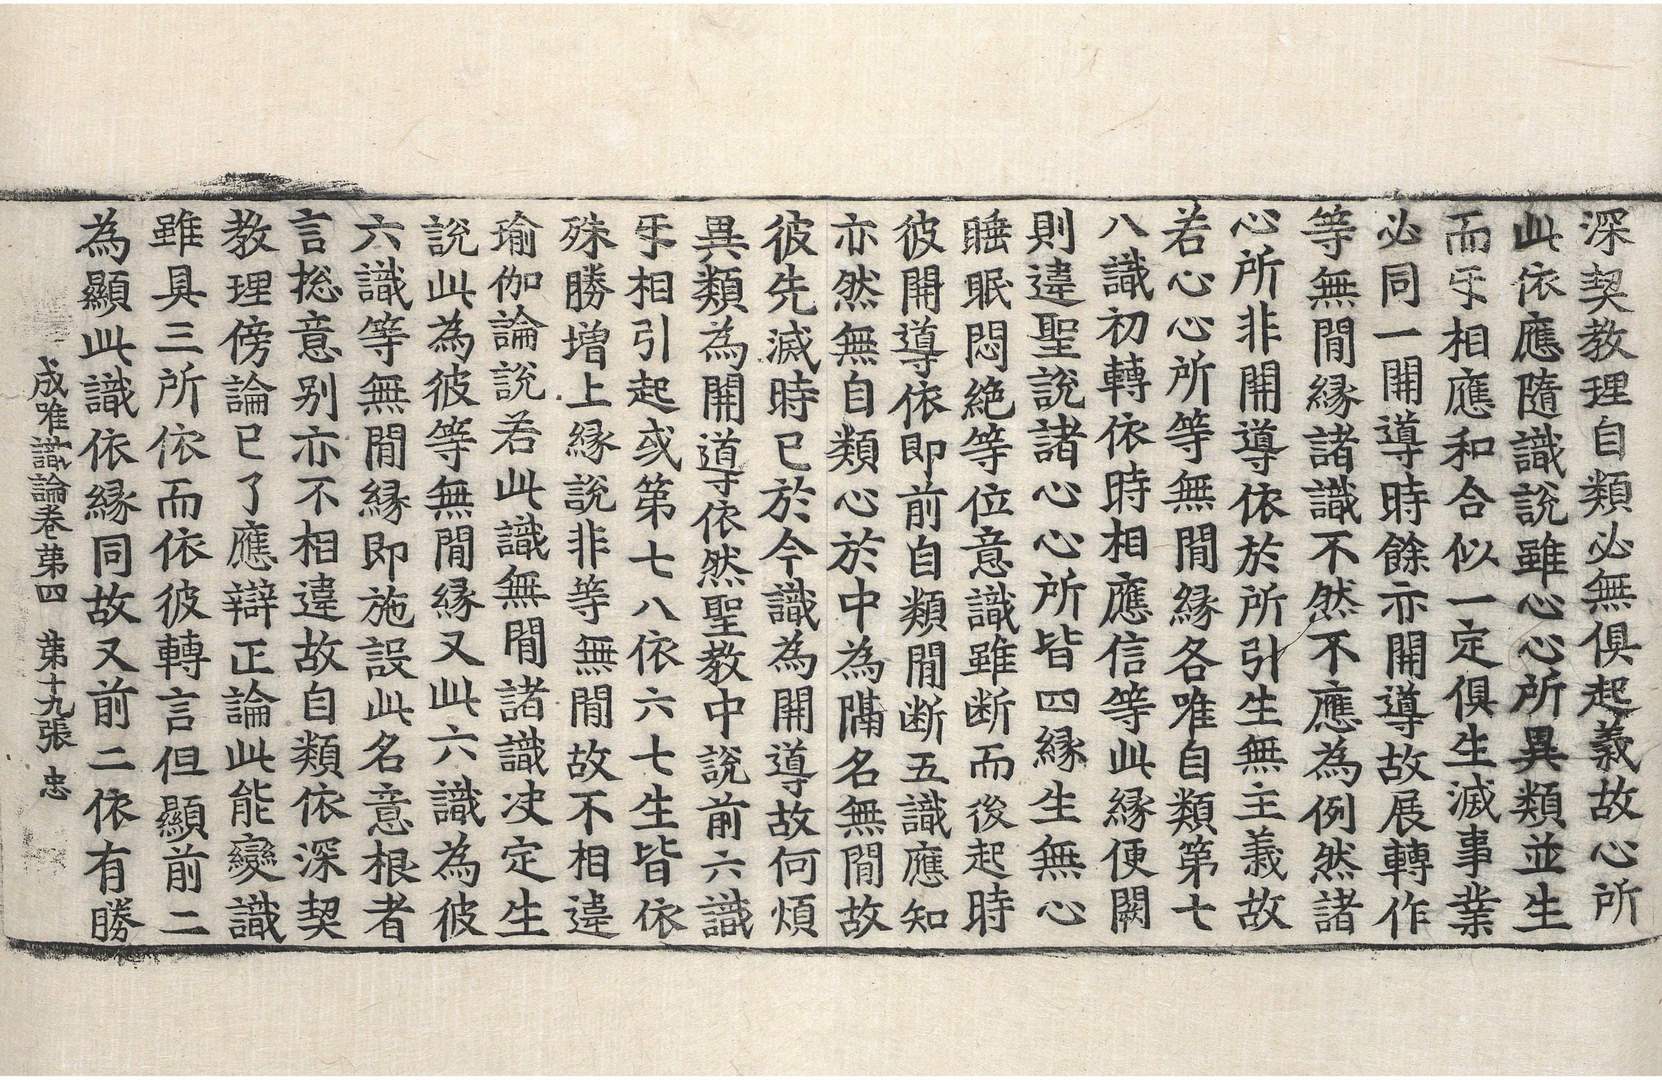 深契教理自類必無俱起義故心所
此依應隨識說雖心心所異類並生
而㸦相應和合似一定俱生滅事業
必同一開導時餘亦開導故展轉作
等無間緣諸識不然不應為例然諸
心所非開導依於所引生無主義故
若心心所等無間緣各唯自類第七
八識初轉依時相應信等此緣便闕
則違聖說諸心心所皆四緣生無心
睡眠悶絕等位意識雖断而後起時
彼開導依即前自類間断五識應知
亦然無自類心於中為隔名無間故
彼先滅時已於今識為開導故何煩
異類為開導依然聖教中說前六識
㸦相引起或第七八依六七生皆依
殊勝增上緣說非等無間故不相違
瑜伽論說若此識無間諸識决定生
說此為彼等無間緣又此六識為彼
六識等無間緣即施設此名意根者
言捴意别亦不相違故自類依深契
教理傍論已了應辯正論此能變識
雖具三所依而依彼轉言但顯前二
為顯此識依緣同故又前二依有勝
成唯識論卷第四 第十九張 忠